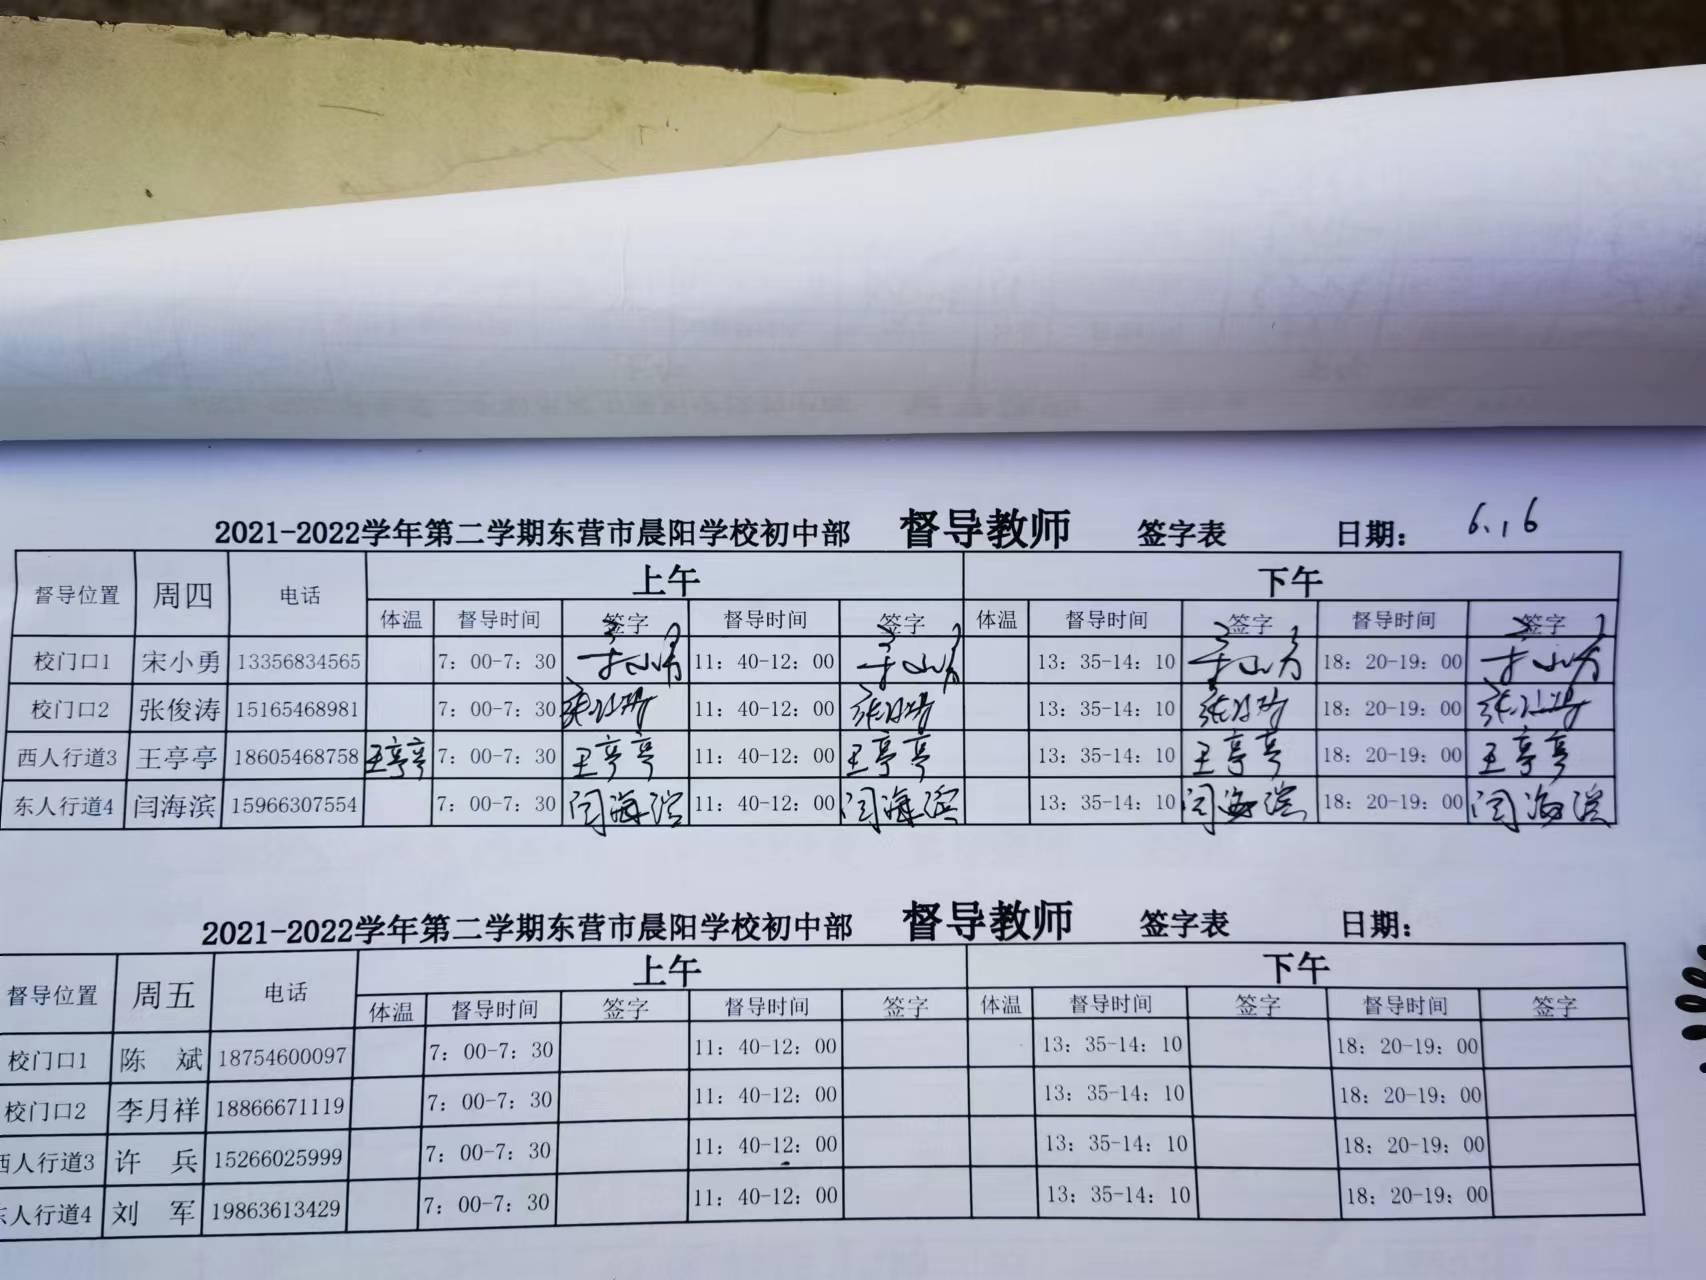 2021-2022学年第二学期东营市晨阳学校初中部 督导教师 签字表 日期： 6.16
督导位置 周四 电话 上午 下午
体温 督导时间 签字 督导时间 签字 体温 督导时间 签字 督导时间 签字
校门口1 宋小勇 13356834565 7：00-7：30 宋小勇 11：40-12：00 宋小勇 13：35-14：10 宋小勇 18：20-19：00 宋小勇
校门口2 张俊涛 15165468981 7：00-7：30 张俊涛 11：40-12：00 张俊涛 13：35-14：10 张俊涛 18：20-19：00 张俊涛
西人行道3 王亭亭 18605468758 王亭亭 7：00-7：30 王亭亭 11：40-12：00 王亭亭 13：35-14：10 王亭亭 18：20-19：00 王亭亭
东人行道4 闫海滨 15966307554 7：00-7：30 闫海滨 11：40-12：00 闫海滨 13：35-14：10 闫海滨 18：20-19：00 闫海滨
2021-2022学年第二学期东营市晨阳学校初中部 督导教师 签字表 日期：
督导位置 周五 电话 上午 下午
体温 督导时间 签字 督导时间 签字 体温 督导时间 签字 督导时间 签字
校门口1 陈 斌 18754600097 7：00-7：30 11：40-12：00 13：35-14：10 18：20-19：00
校门口2 李月祥 18866671119 7：00-7：30 11：40-12：00 13：35-14：10 18：20-19：00
西人行道3 许 兵 15266025999 7：00-7：30 11：40-12：00 13：35-14：10 18：20-19：00
东人行道4 刘 军 19863613429 7：00-7：30 11：40-12：00 13：35-14：10 18：20-19：00